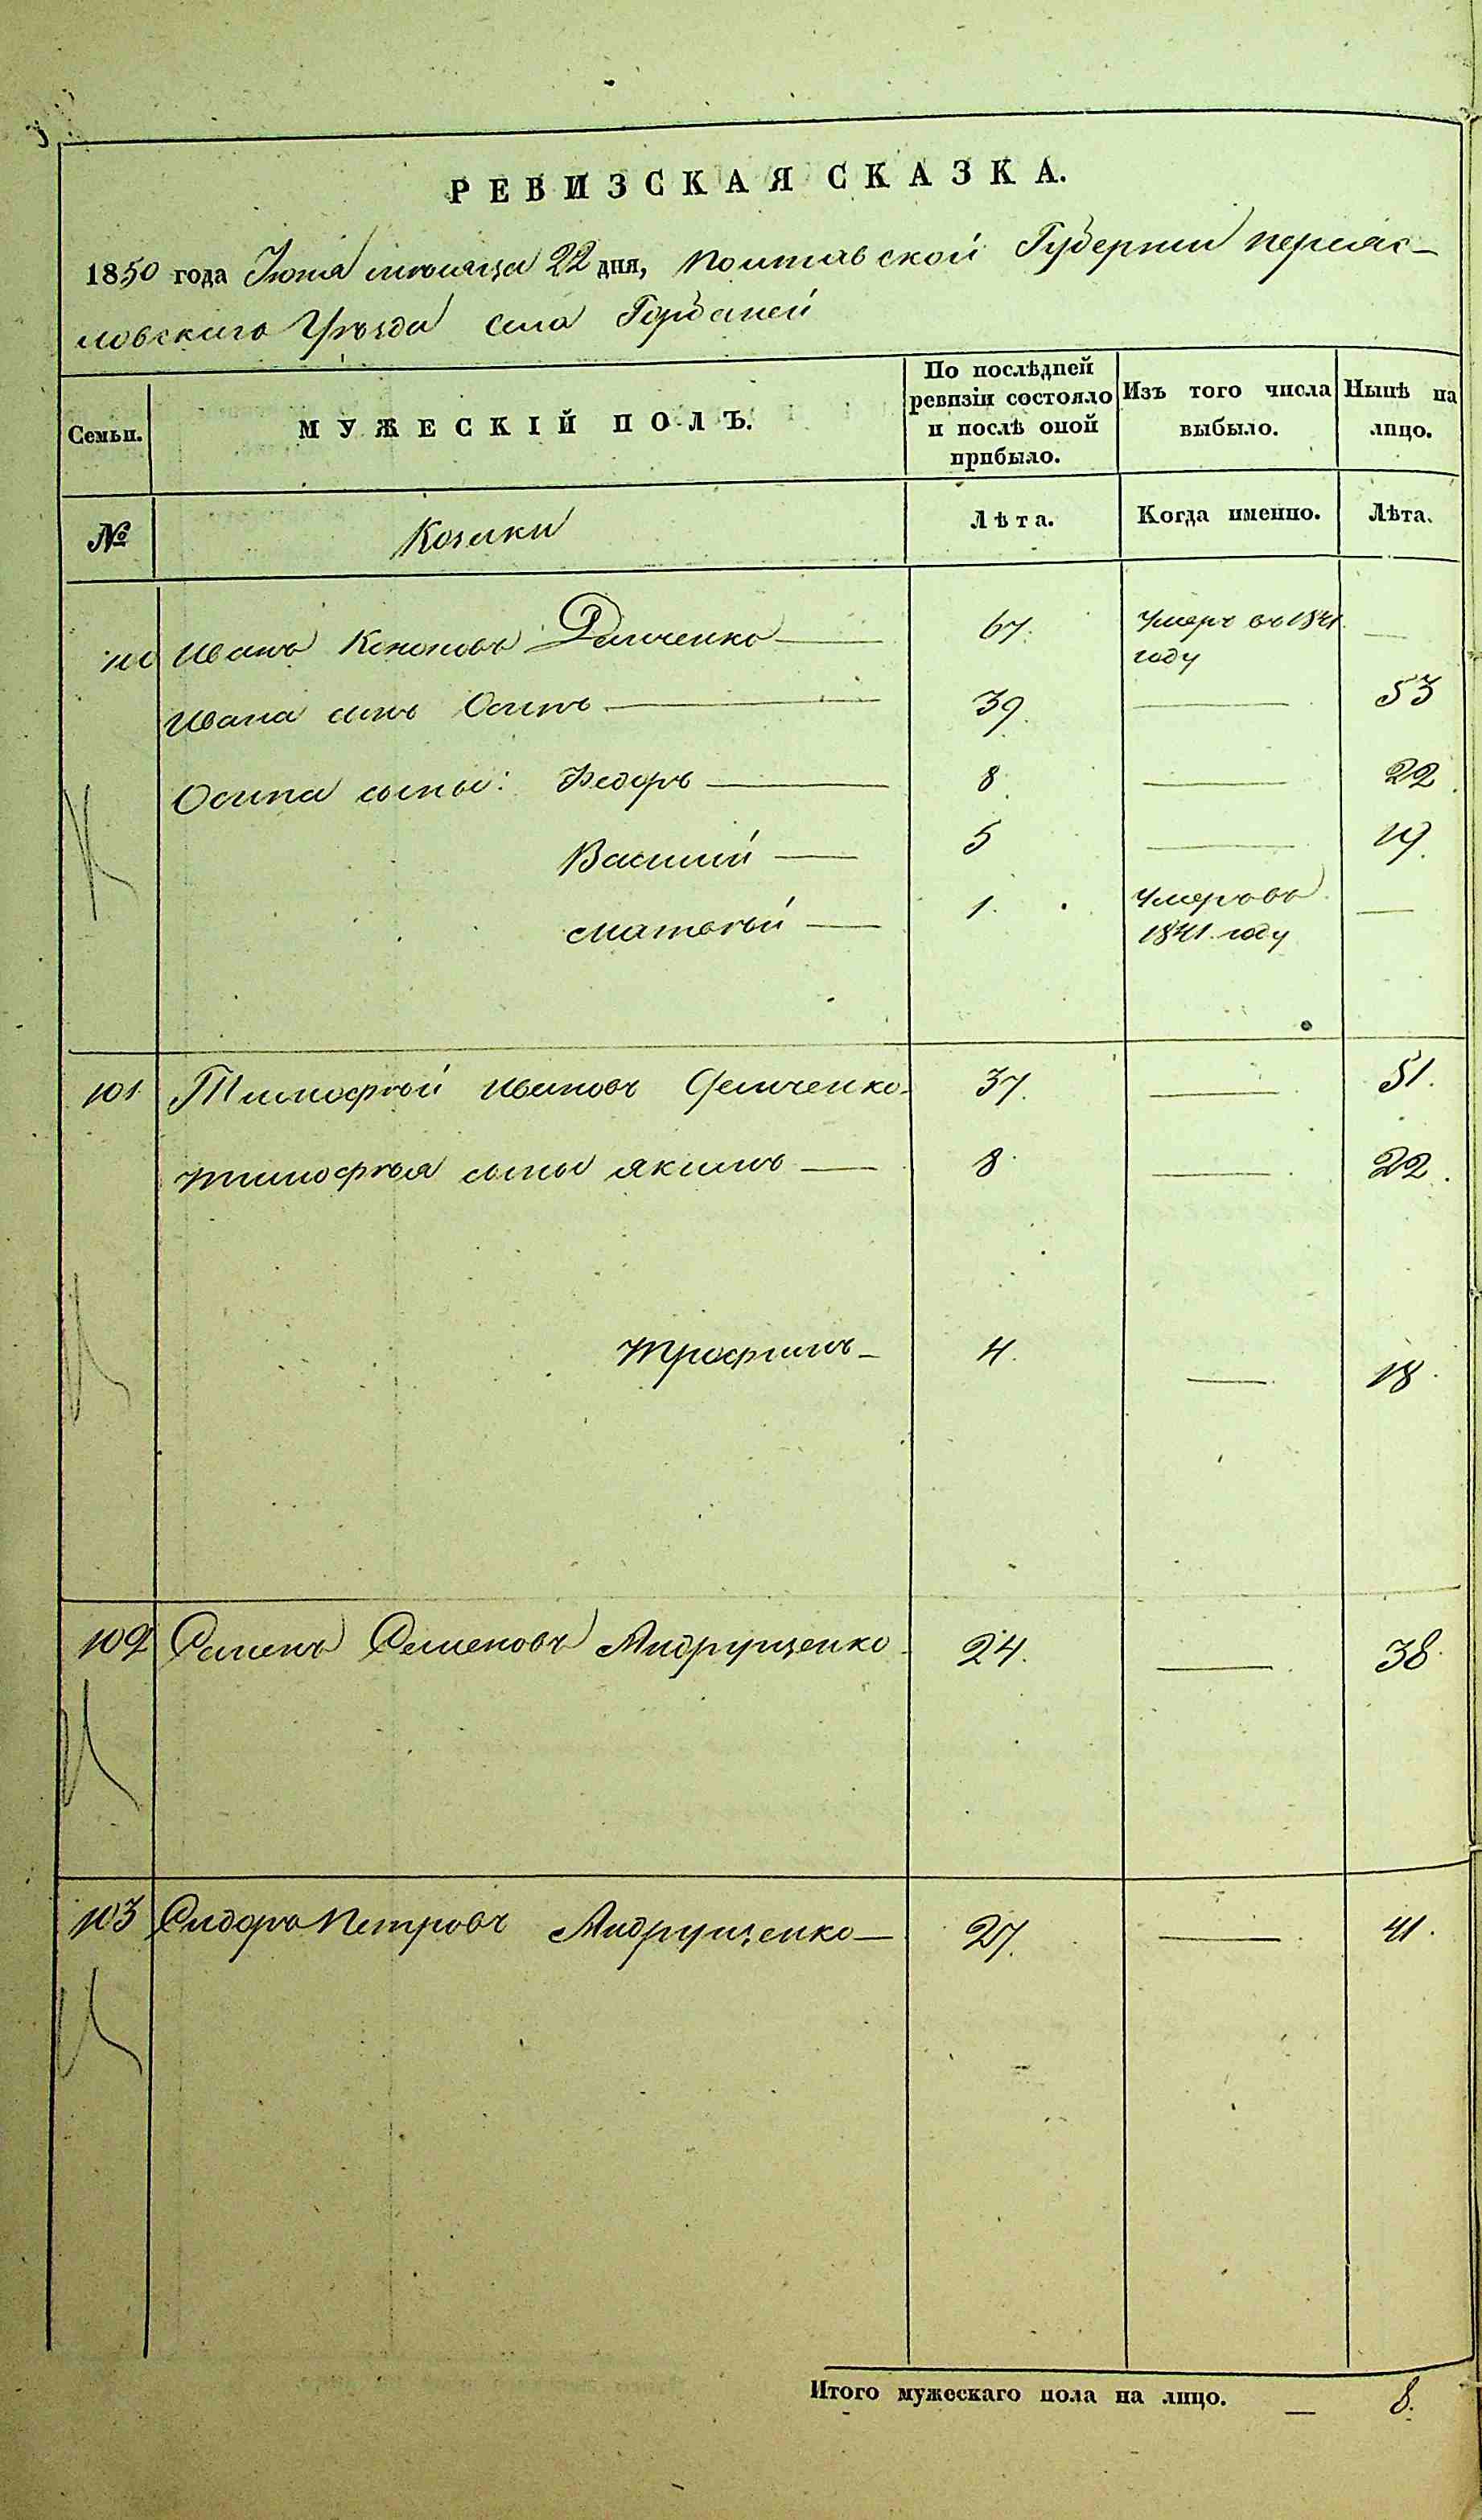 РЕВИЗСКАЯ СКАЗКА.
1850 года Іюня месяца 22 дня, Полтавской Губерніи переяс-
ловскаго Уѣзда села Горбаней
Семьи.
МУЖЕСКІЙ ПОЛЪ.
По послѣдней ревизіи состояло и послѣ оной прибыло.
Изъ того числа выбыло.
Нынѣ на лицо.
№ Козаки Лѣта. Когда именно. Лѣта.
Иванъ Кононовъ Демченко 67. Умеръ въ 1841 году
Ивана сынъ Осипъ 39. 53
Осипа сыны: Федоръ 8. 22.
Василій 5 19.
Матвѣй 1. Умеръ въ 1841 году
101 Тимофѣй Ивановъ Демченко 37. 51.
Тимофѣя сыны Якимъ 8. 22.
Трофимъ 4. 18.
102 Семенъ Семеновъ Андрущенко 24. 38.
103 Сидоръ Петровъ Андрущенко 27. 41.
Итого мужескаго пола на лицо. 8.